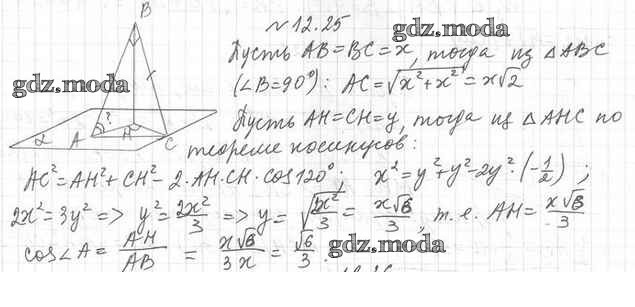 B
N 12.25
gdz.moda
Пусть AB=BC=x, тогда из △ABC
gdz.moda
(∠B=90°): AC=√x²+x² = x√2
Пусть AH=CH=y, тогда из △AHC по
α A ? H C
теореме косинусов:
AC²=AH²+CH²-2·AH·CH·cos120°; x²=y²+y²-2y²·(-1/2);
2x²=3y² => y²=2x²/3 => y=√2x²/3 = x√6/3, т.е. AH=x√6/3
cos∠A = AH/AB = x√6/3x = √6/3.
gdz.moda